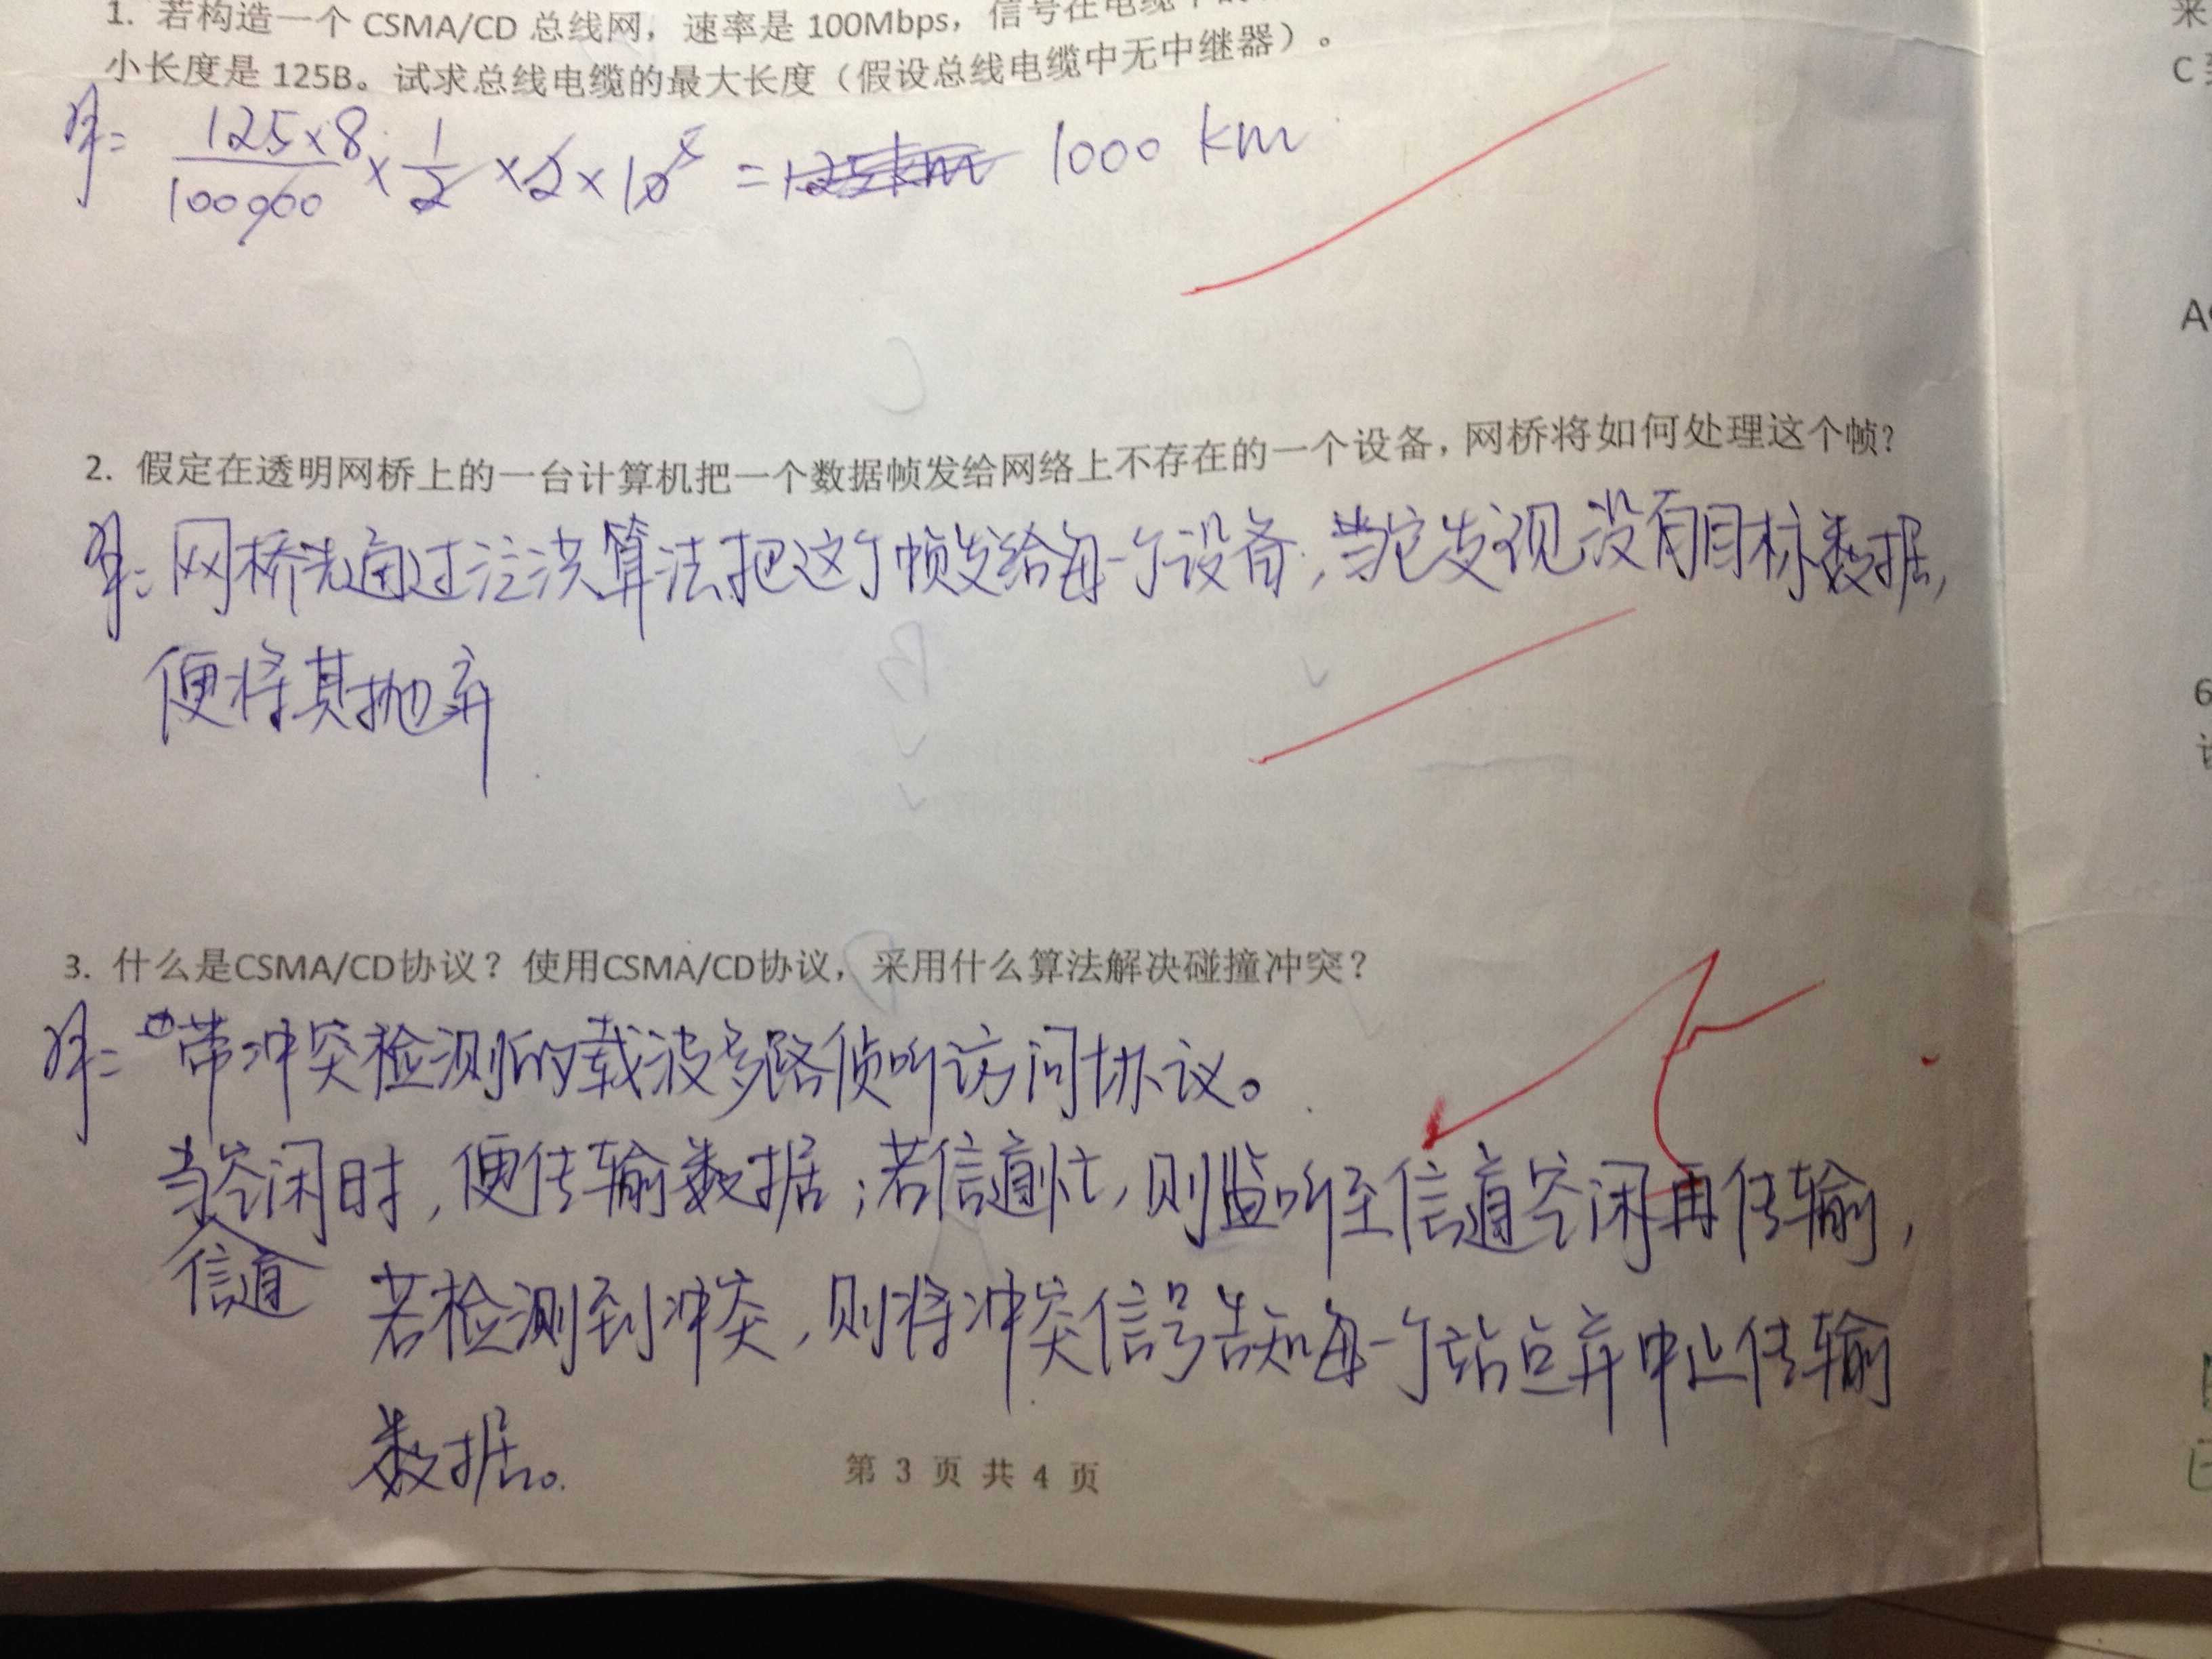 1. 若构造一个 CSMA/CD 总线网，速率是 100Mbps，信号在电缆中
小长度是 125B。试求总线电缆的最大长度（假设总线电缆中无中继器）。
125×8/100000 × 1/2 × 2 × 10⁵ = 1000 km
2. 假定在透明网桥上的一台计算机把一个数据帧发给网络上不存在的一个设备，网桥将如何处理这个帧？
网桥先通过泛洪算法把这个帧发给每一个设备，当它发现没有目标数据，
便将其抛弃
3. 什么是CSMA/CD协议？使用CSMA/CD协议，采用什么算法解决碰撞冲突？
带冲突检测的载波多路侦听访问协议。
当信道空闲时，便传输数据；若信道忙，则监听至信道空闲再传输，
若检测到冲突，则将冲突信号告知每一个站点弃中止传输
数据。
第 3 页 共 4 页
来
C
A
6